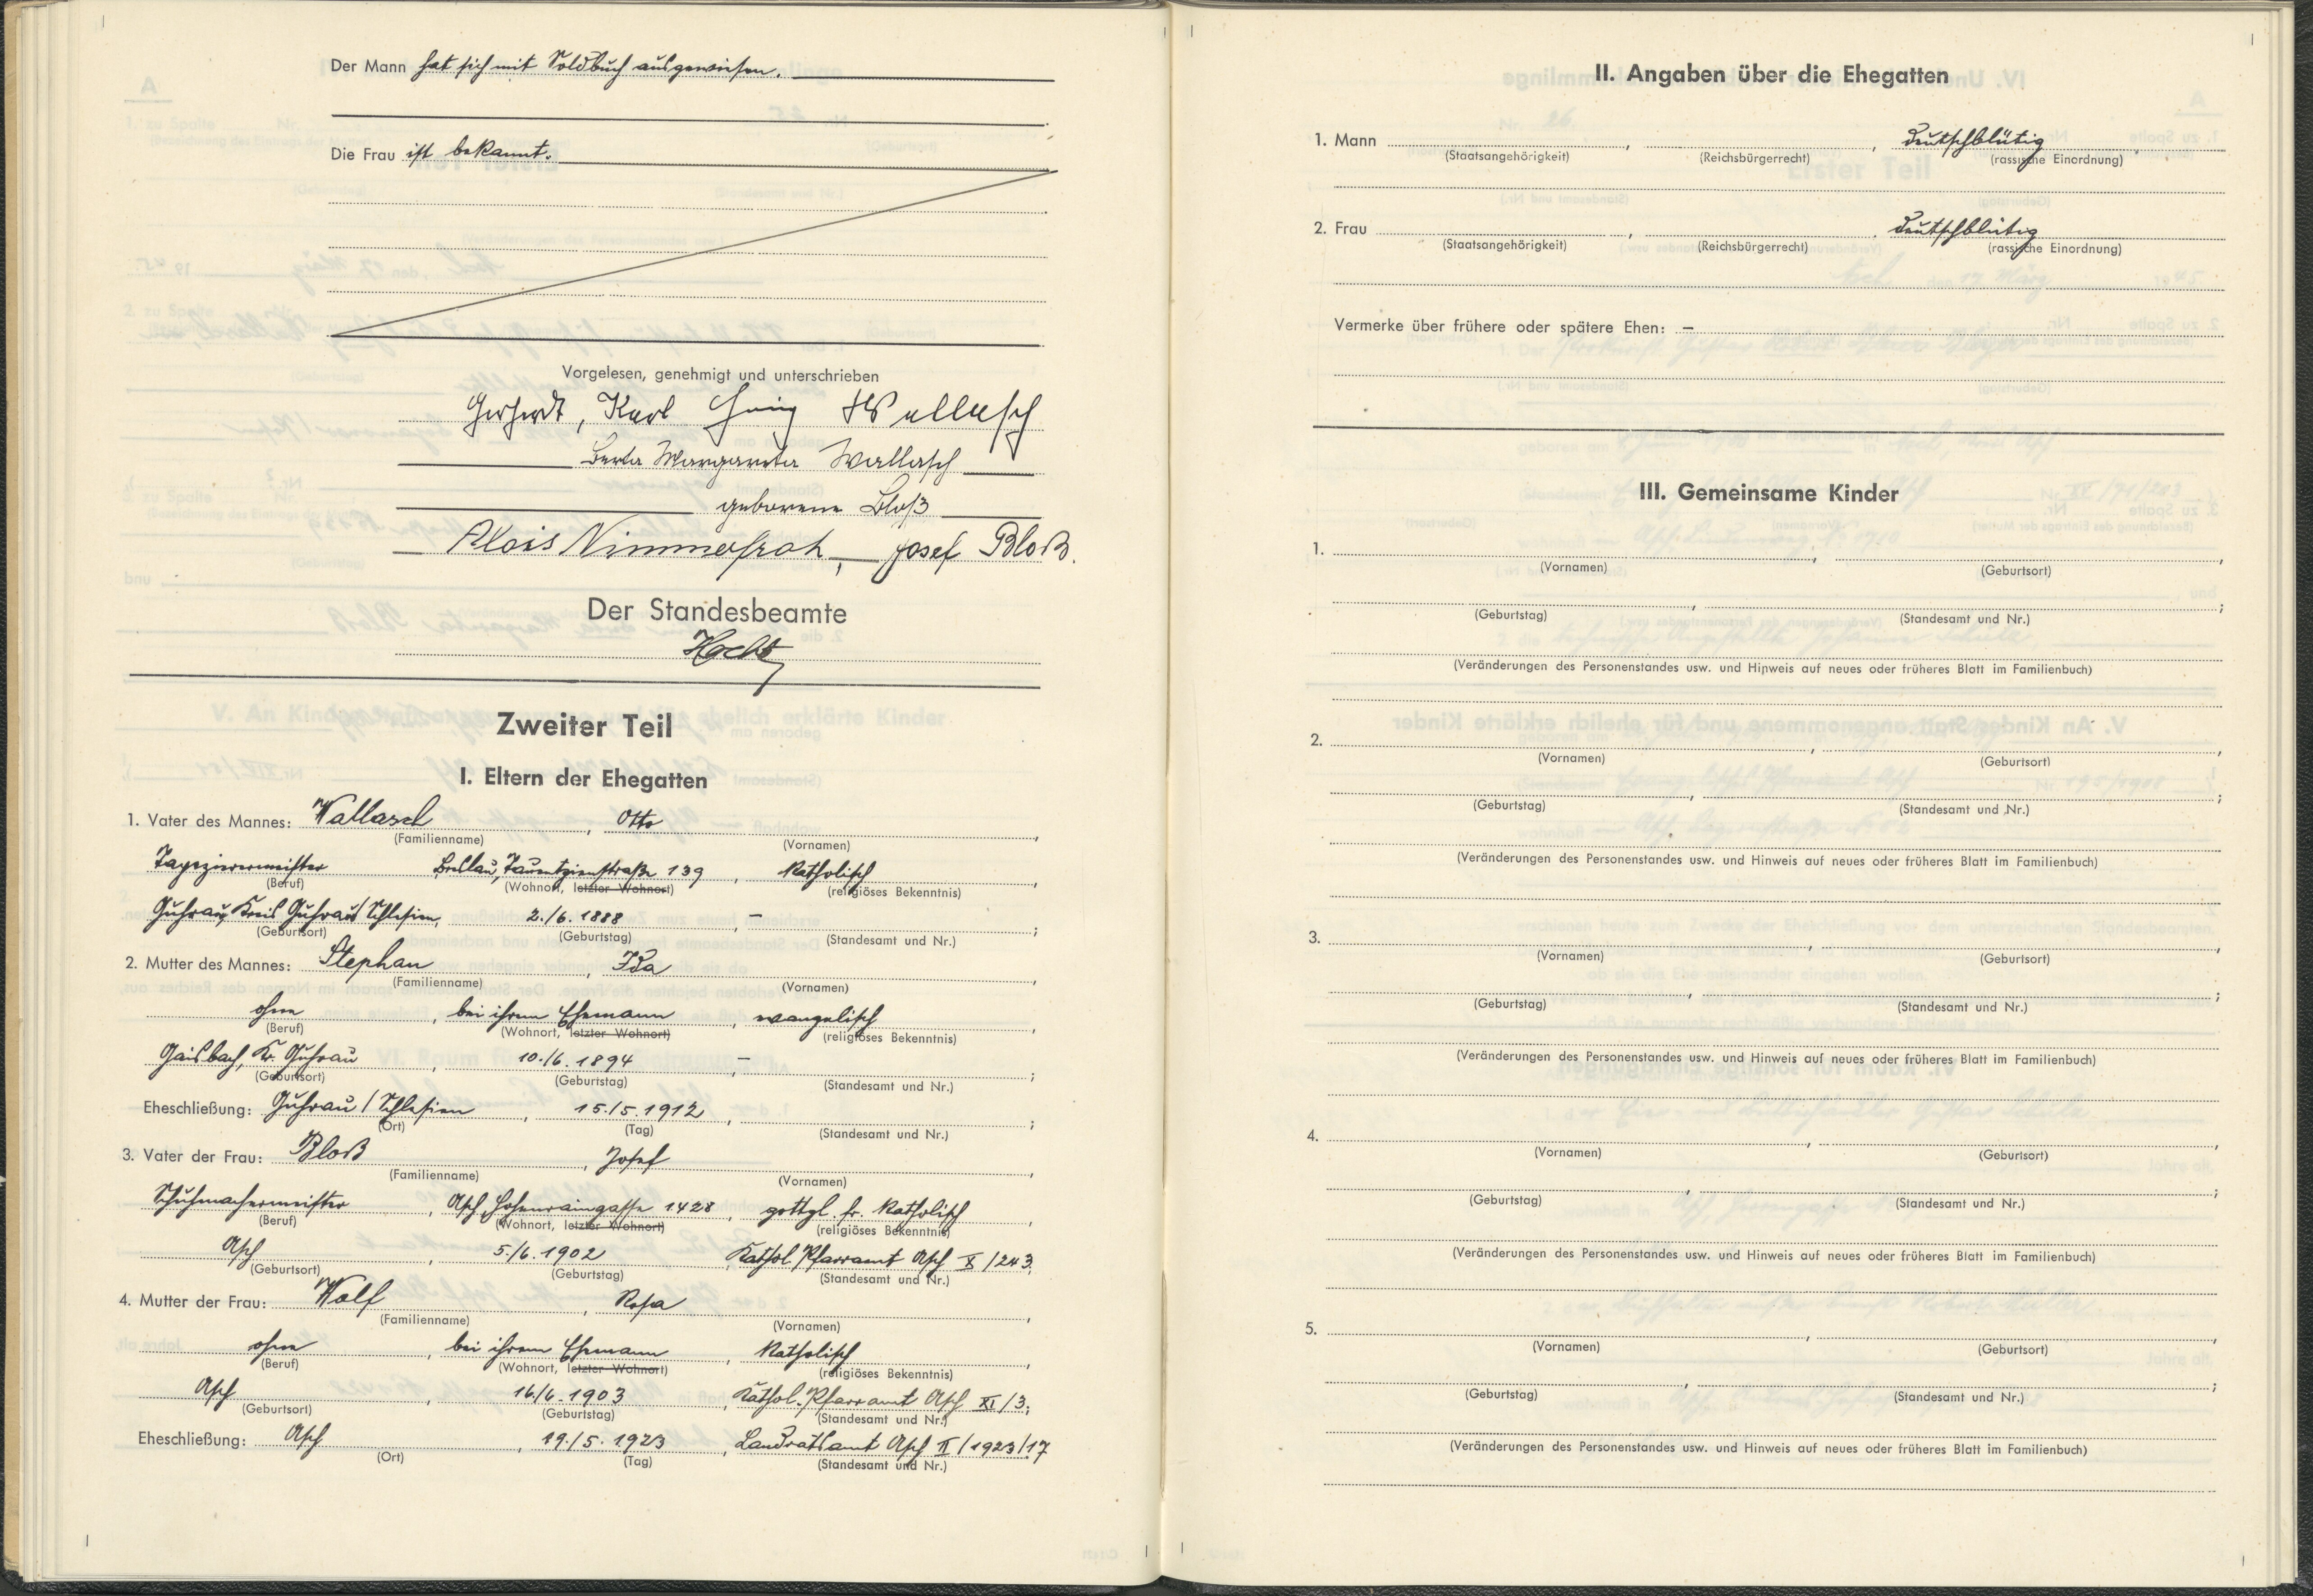 Der Mann hat sich mit Soldbuch ausgewiesen.
Die Frau ist bekannt.
Vorgelesen, genehmigt und unterschrieben
Karl Wallasch
Berta Margareta Wallasch
geborene Bloß
Alois Nimmerfroh, Josef Bloß.
Der Standesbeamte
Zweiter Teil
I. Eltern der Ehegatten
1. Vater des Mannes: Wallasch, Otto,
(Familienname) (Vornamen)
Tapezierermeister Breslau, Tauentzienstraße 139, katholisch,
(Beruf) (Wohnort, letzter Wohnort) (religiöses Bekenntnis)
Guhrau, Kreis Guhrau/Schlesien, 2./6. 1888, –;
(Geburtsort) (Geburtstag) (Standesamt und Nr.)
2. Mutter des Mannes: Stephan, Ida,
(Familienname) (Vornamen)
ohne, bei ihrem Ehemann, evangelisch,
(Beruf) (Wohnort, letzter Wohnort) (religiöses Bekenntnis)
Gaisbach, Kr. Guhrau, 10./6. 1894, –;
(Geburtsort) (Geburtstag) (Standesamt und Nr.)
Eheschließung: Guhrau / Schlesien, 15./5. 1912,;
(Ort) (Tag) (Standesamt und Nr.)
3. Vater der Frau: Bloß, Josef,
(Familienname) (Vornamen)
Schuhmachermeister, Asch, Hohenraingasse 1428, gottgl. fr. katholisch,
(Beruf) (Wohnort, letzter Wohnort) (religiöses Bekenntnis)
Asch, 5./6. 1902, Kathol. Pfarramt Asch X/243;
(Geburtsort) (Geburtstag) (Standesamt und Nr.)
4. Mutter der Frau: Wolf, Rosa,
(Familienname) (Vornamen)
ohne, bei ihrem Ehemann, katholisch,
(Beruf) (Wohnort, letzter Wohnort) (religiöses Bekenntnis)
Asch, 16./6. 1903, Kathol. Pfarramt Asch XI/3;
(Geburtsort) (Geburtstag) (Standesamt und Nr.)
Eheschließung: Asch, 19./5. 1923, Landratsamt Asch II/1923/17
(Ort) (Tag) (Standesamt und Nr.)
II. Angaben über die Ehegatten
1. Mann , , deutschblütig
(Staatsangehörigkeit) (Reichsbürgerrecht) (rassische Einordnung)
2. Frau , , deutschblütig
(Staatsangehörigkeit) (Reichsbürgerrecht) (rassische Einordnung)
Vermerke über frühere oder spätere Ehen: –
III. Gemeinsame Kinder
1. , ,
(Vornamen) (Geburtsort)
, ;
(Geburtstag) (Standesamt und Nr.)
(Veränderungen des Personenstandes usw. und Hinweis auf neues oder früheres Blatt im Familienbuch)
2. , ,
(Vornamen) (Geburtsort)
, ;
(Geburtstag) (Standesamt und Nr.)
(Veränderungen des Personenstandes usw. und Hinweis auf neues oder früheres Blatt im Familienbuch)
3. , ,
(Vornamen) (Geburtsort)
, ;
(Geburtstag) (Standesamt und Nr.)
(Veränderungen des Personenstandes usw. und Hinweis auf neues oder früheres Blatt im Familienbuch)
4. , ,
(Vornamen) (Geburtsort)
, ;
(Geburtstag) (Standesamt und Nr.)
(Veränderungen des Personenstandes usw. und Hinweis auf neues oder früheres Blatt im Familienbuch)
5. , ,
(Vornamen) (Geburtsort)
, ;
(Geburtstag) (Standesamt und Nr.)
(Veränderungen des Personenstandes usw. und Hinweis auf neues oder früheres Blatt im Familienbuch)